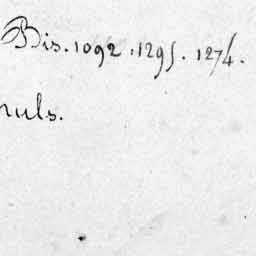 Bis. 1092. 1295. 1274.
nuls.